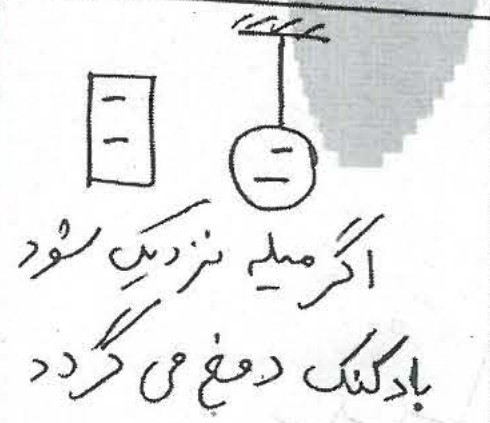 اگر میله نزدیک شود
بادکنک دفع می گردد